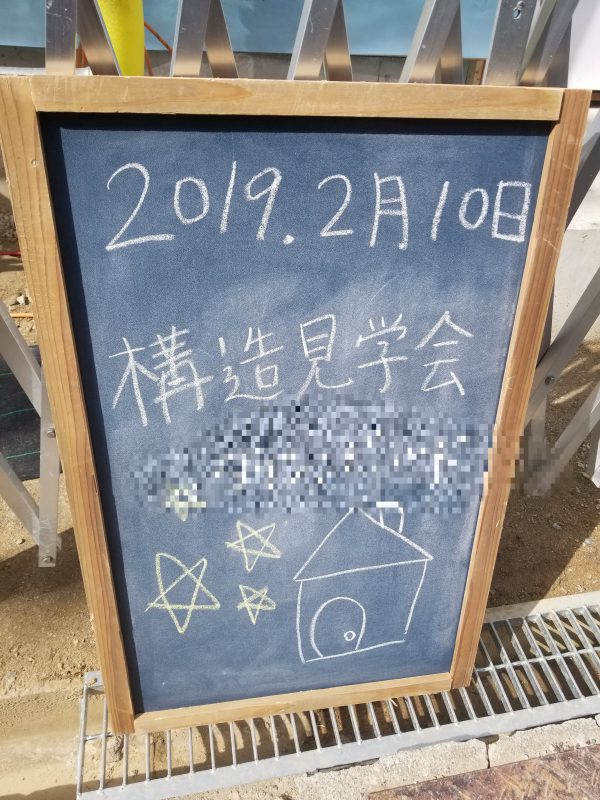 2019.2月10日
構造見学会